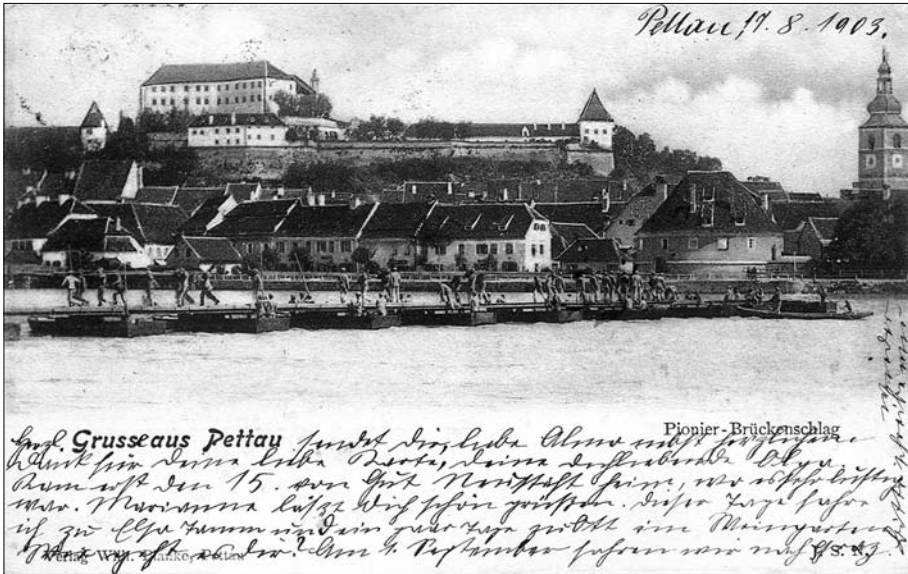 Pettau 17. 8. 1903.
Pionier-Brückenschlag
Herzl. Grusse aus Pettau sendet dir, liebe Alma nebst herzlichem
Dank für deine liebe Karte, deine dichliebende Olga.
Kam erst den 15. von Gut Neustift heim, wo es sehr lustig
war. Marianne läßt Dich schön grüßen. Dieser Tage fahre
ich zu Elsa Tamm und ein paar Tage zu Ott im Weingarten
Am 1. September fahren wir nach
Verlag Wilh. Blanke, Pettau